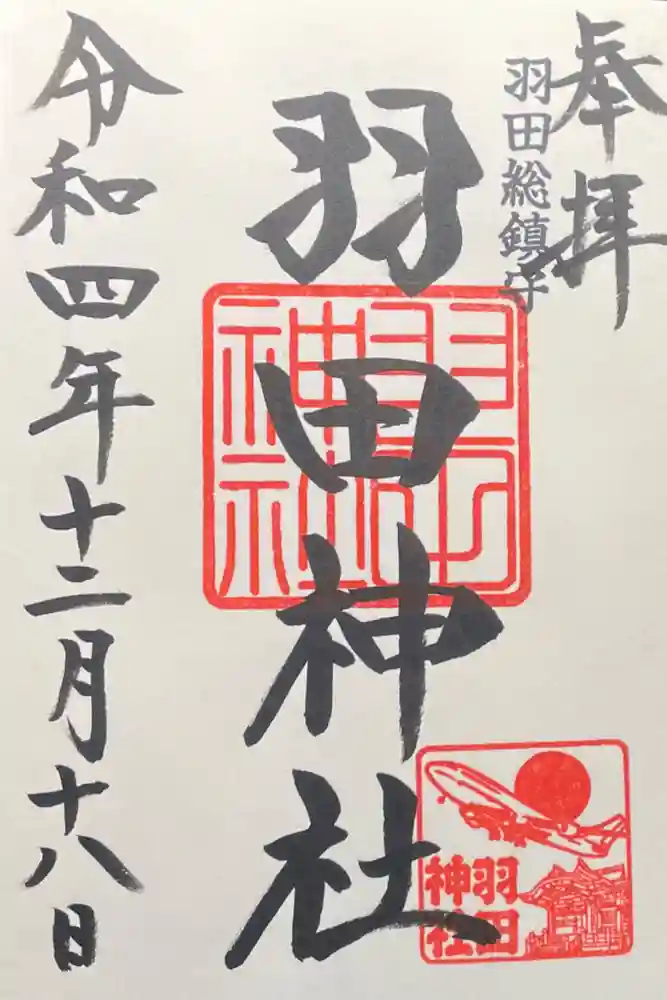 奉拝
羽田総鎮守
羽田神社
羽田神社
令和四年十二月十八日
羽田
神社